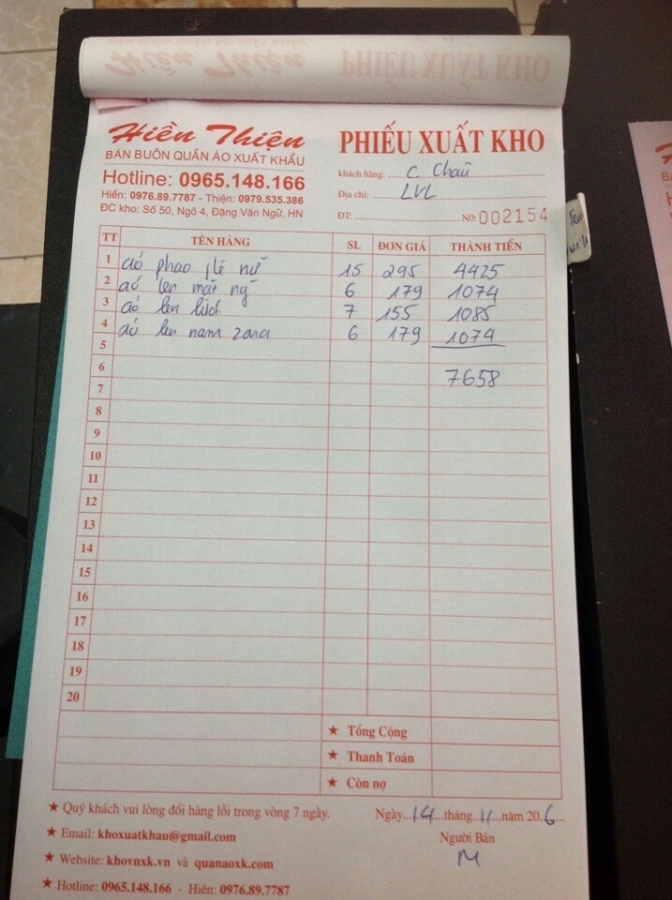 Hiền Thiện
BÁN BUÔN QUẦN ÁO XUẤT KHẨU
Hotline: 0965.148.166
Hiền: 0976.89.7787 - Thiện: 0979.535.386
ĐC kho: Số 50, Ngõ 4, Đặng Văn Ngữ, HN
PHIẾU XUẤT KHO
khách hàng: C. Châu
Địa chỉ: LVL
ĐT:
No: 002154
TT TÊN HÀNG SL ĐƠN GIÁ THÀNH TIỀN
1 áo phao nữ 15 295 4425
2 áo len 6 179 1074
3 áo len 7 155 1085
4 áo len nam zara 6 179 1074
5
6 7658
7
8
9
10
11
12
13
14
15
16
17
18
19
20
★ Tổng Cộng
★ Thanh Toán
★ Còn nợ
★ Quý khách vui lòng đổi hàng lỗi trong vòng 7 ngày.
Ngày 14 tháng 11 năm 20 6
★ Email: khoxuatkhau@gmail.com
Người Bán
★ Website: khovnxk.vn và quanaoxk.com
★ Hotline: 0965.148.166 - Hiền: 0976.89.7787